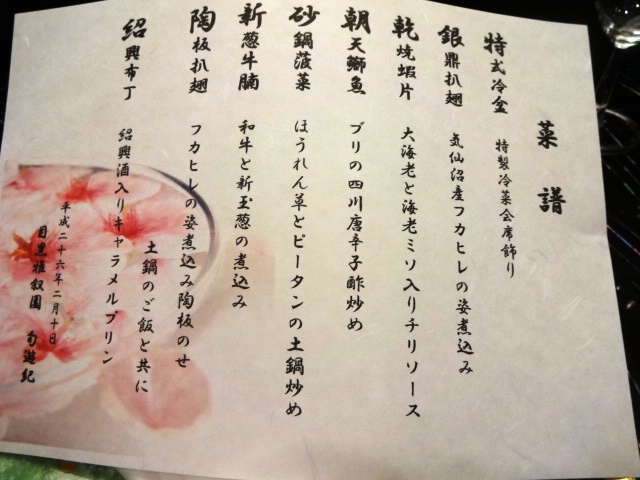 菜譜
特式冷盆 特製冷菜会席飾り
銀鼎扒翅 気仙沼産フカヒレの姿煮込み
乾焼蝦片 大海老と海老ミソ入りチリソース
朝天鰤魚 ブリの四川唐辛子酢炒め
砂鍋菠菜 ほうれん草とピータンの土鍋炒め
新葱牛腩 和牛と新玉葱の煮込み
陶板扒翅 フカヒレの姿煮込み陶板のせ
土鍋のご飯と共に
紹興布丁 紹興酒入りキャラメルプリン
平成二十六年二月十日
目黒雅叙園 旬遊紀